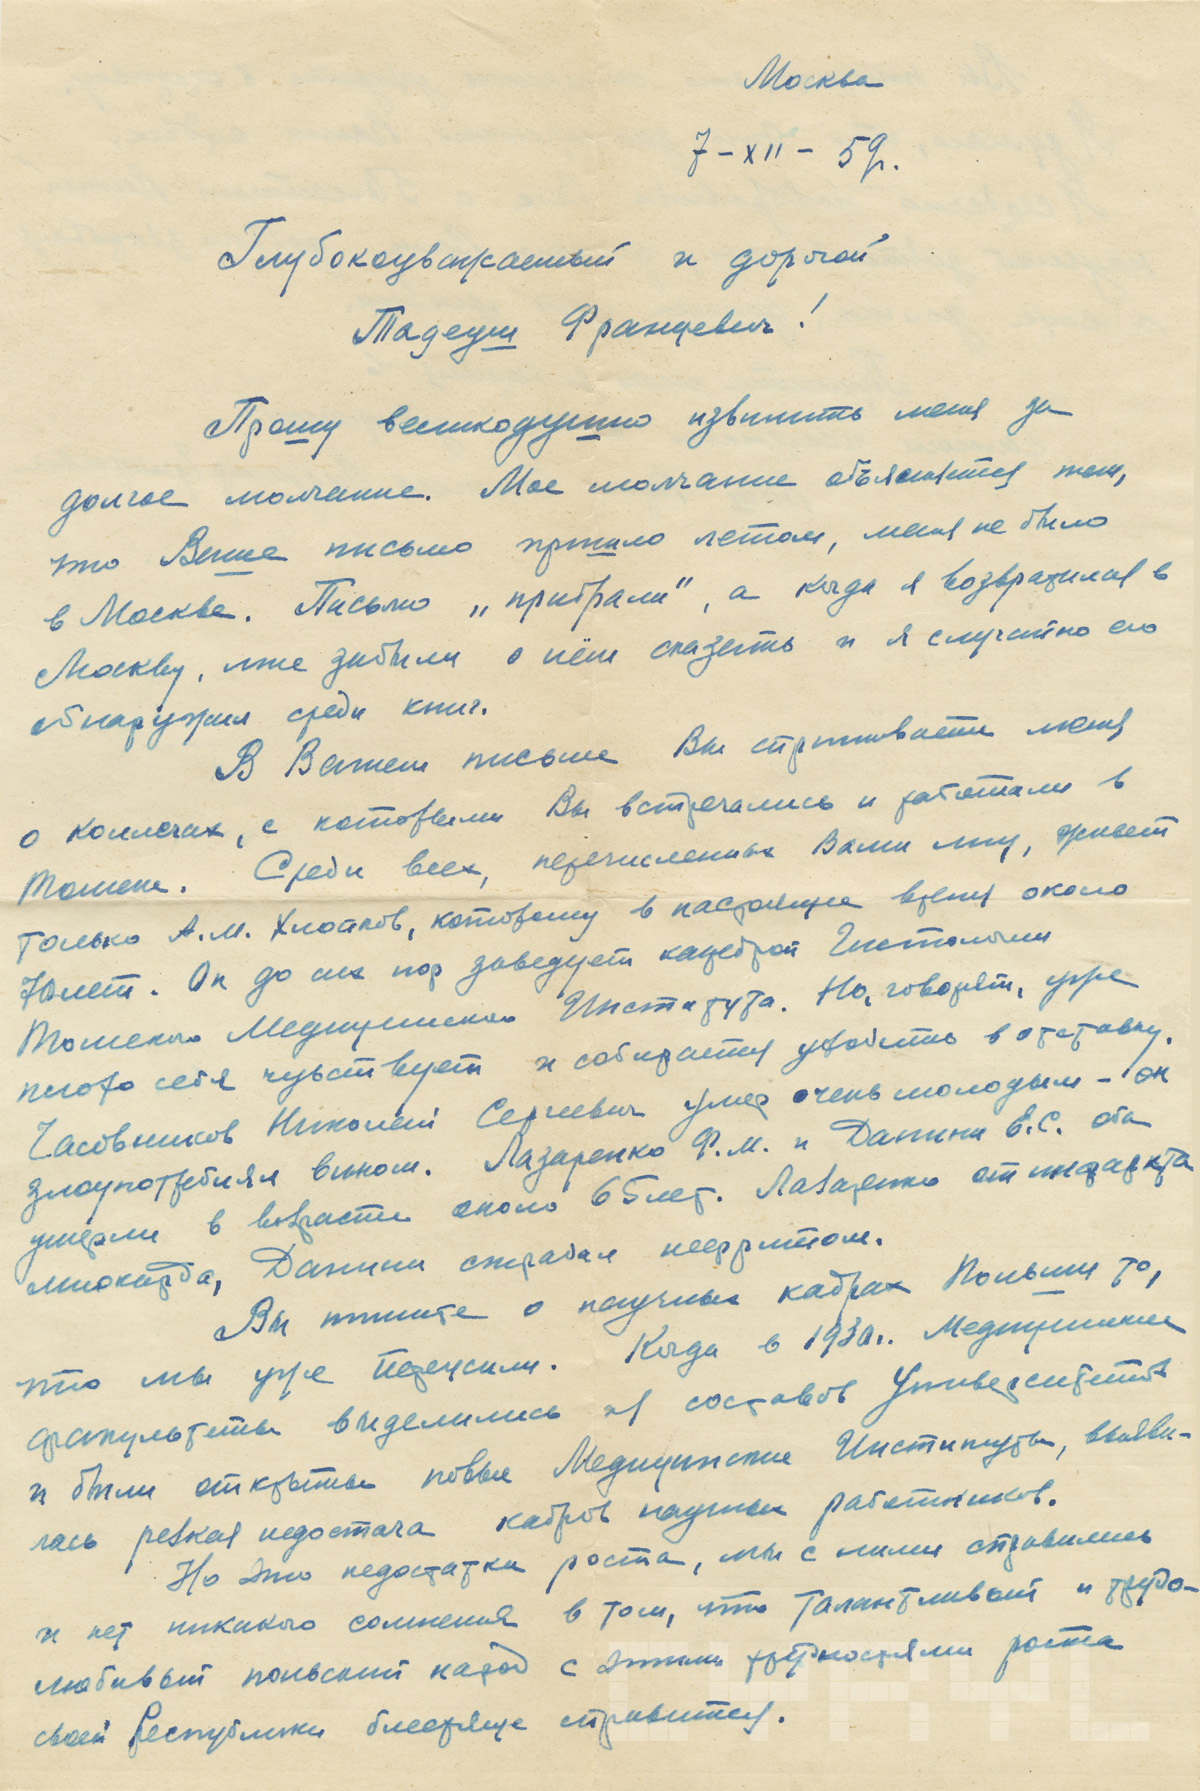 Москва
7-XII-59г.
Глубокоуважаемый и дорогой
Тадеуш Францевич!
Прошу великодушно извинить меня за
долгое молчание. Мое молчание объясняется тем,
что Ваше письмо пришло летом, меня не было
в Москве. Письмо „прибрали", а когда я возвратился в
Москву, мне забыли о нём сказать и я случайно его
обнаружил среди книг.
В Вашем письме Вы спрашиваете меня
о коллегах, с которыми Вы встречались и работали в
Томске. Среди всех, перечисленных Вами лиц, живет
только А.М. Хлопков, которому в настоящее время около
70 лет. Он до сих пор заведует кафедрой Гистологии
Томского Медицинского Института. Но, говорят, уже
плохо себя чувствует и собирается уходить в отставку.
Часовников Николай Сергеевич умер очень молодым - он
злоупотреблял вином. Лазаренко Ф.М. и Данини Е.С. оба
умерли в возрасте около 65 лет. Лазаренко от инфаркта
миокарда, Данини страдал нефритом.
Вы пишите о научных кадрах Польши то,
что мы уже пережили. Когда в 1930г. Медицинские
факультеты выделились из составов Университетов
и были открыты новые Медицинские Институты, выяви-
лась резкая недостача кадров научных работников.
Но это недостатки роста, мы с ними справились
и нет никакого сомнения в том, что талантливый и трудо-
любивый польский народ с этими трудностями роста
своей Республики блестяще справится.